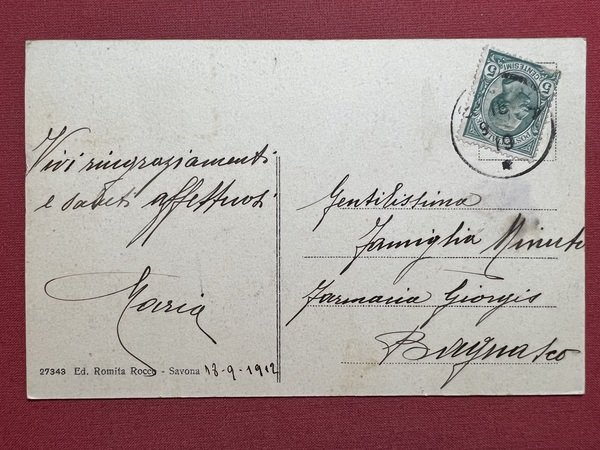 Vivi ringraziamenti
e saluti affettuosi
Maria
27343 Ed. Romita Rocco - Savona 13-9-1912
5 CENTESIMI 5
Gentilissima
Famiglia Minuto
Farmacia Giorgis
Bagnasco